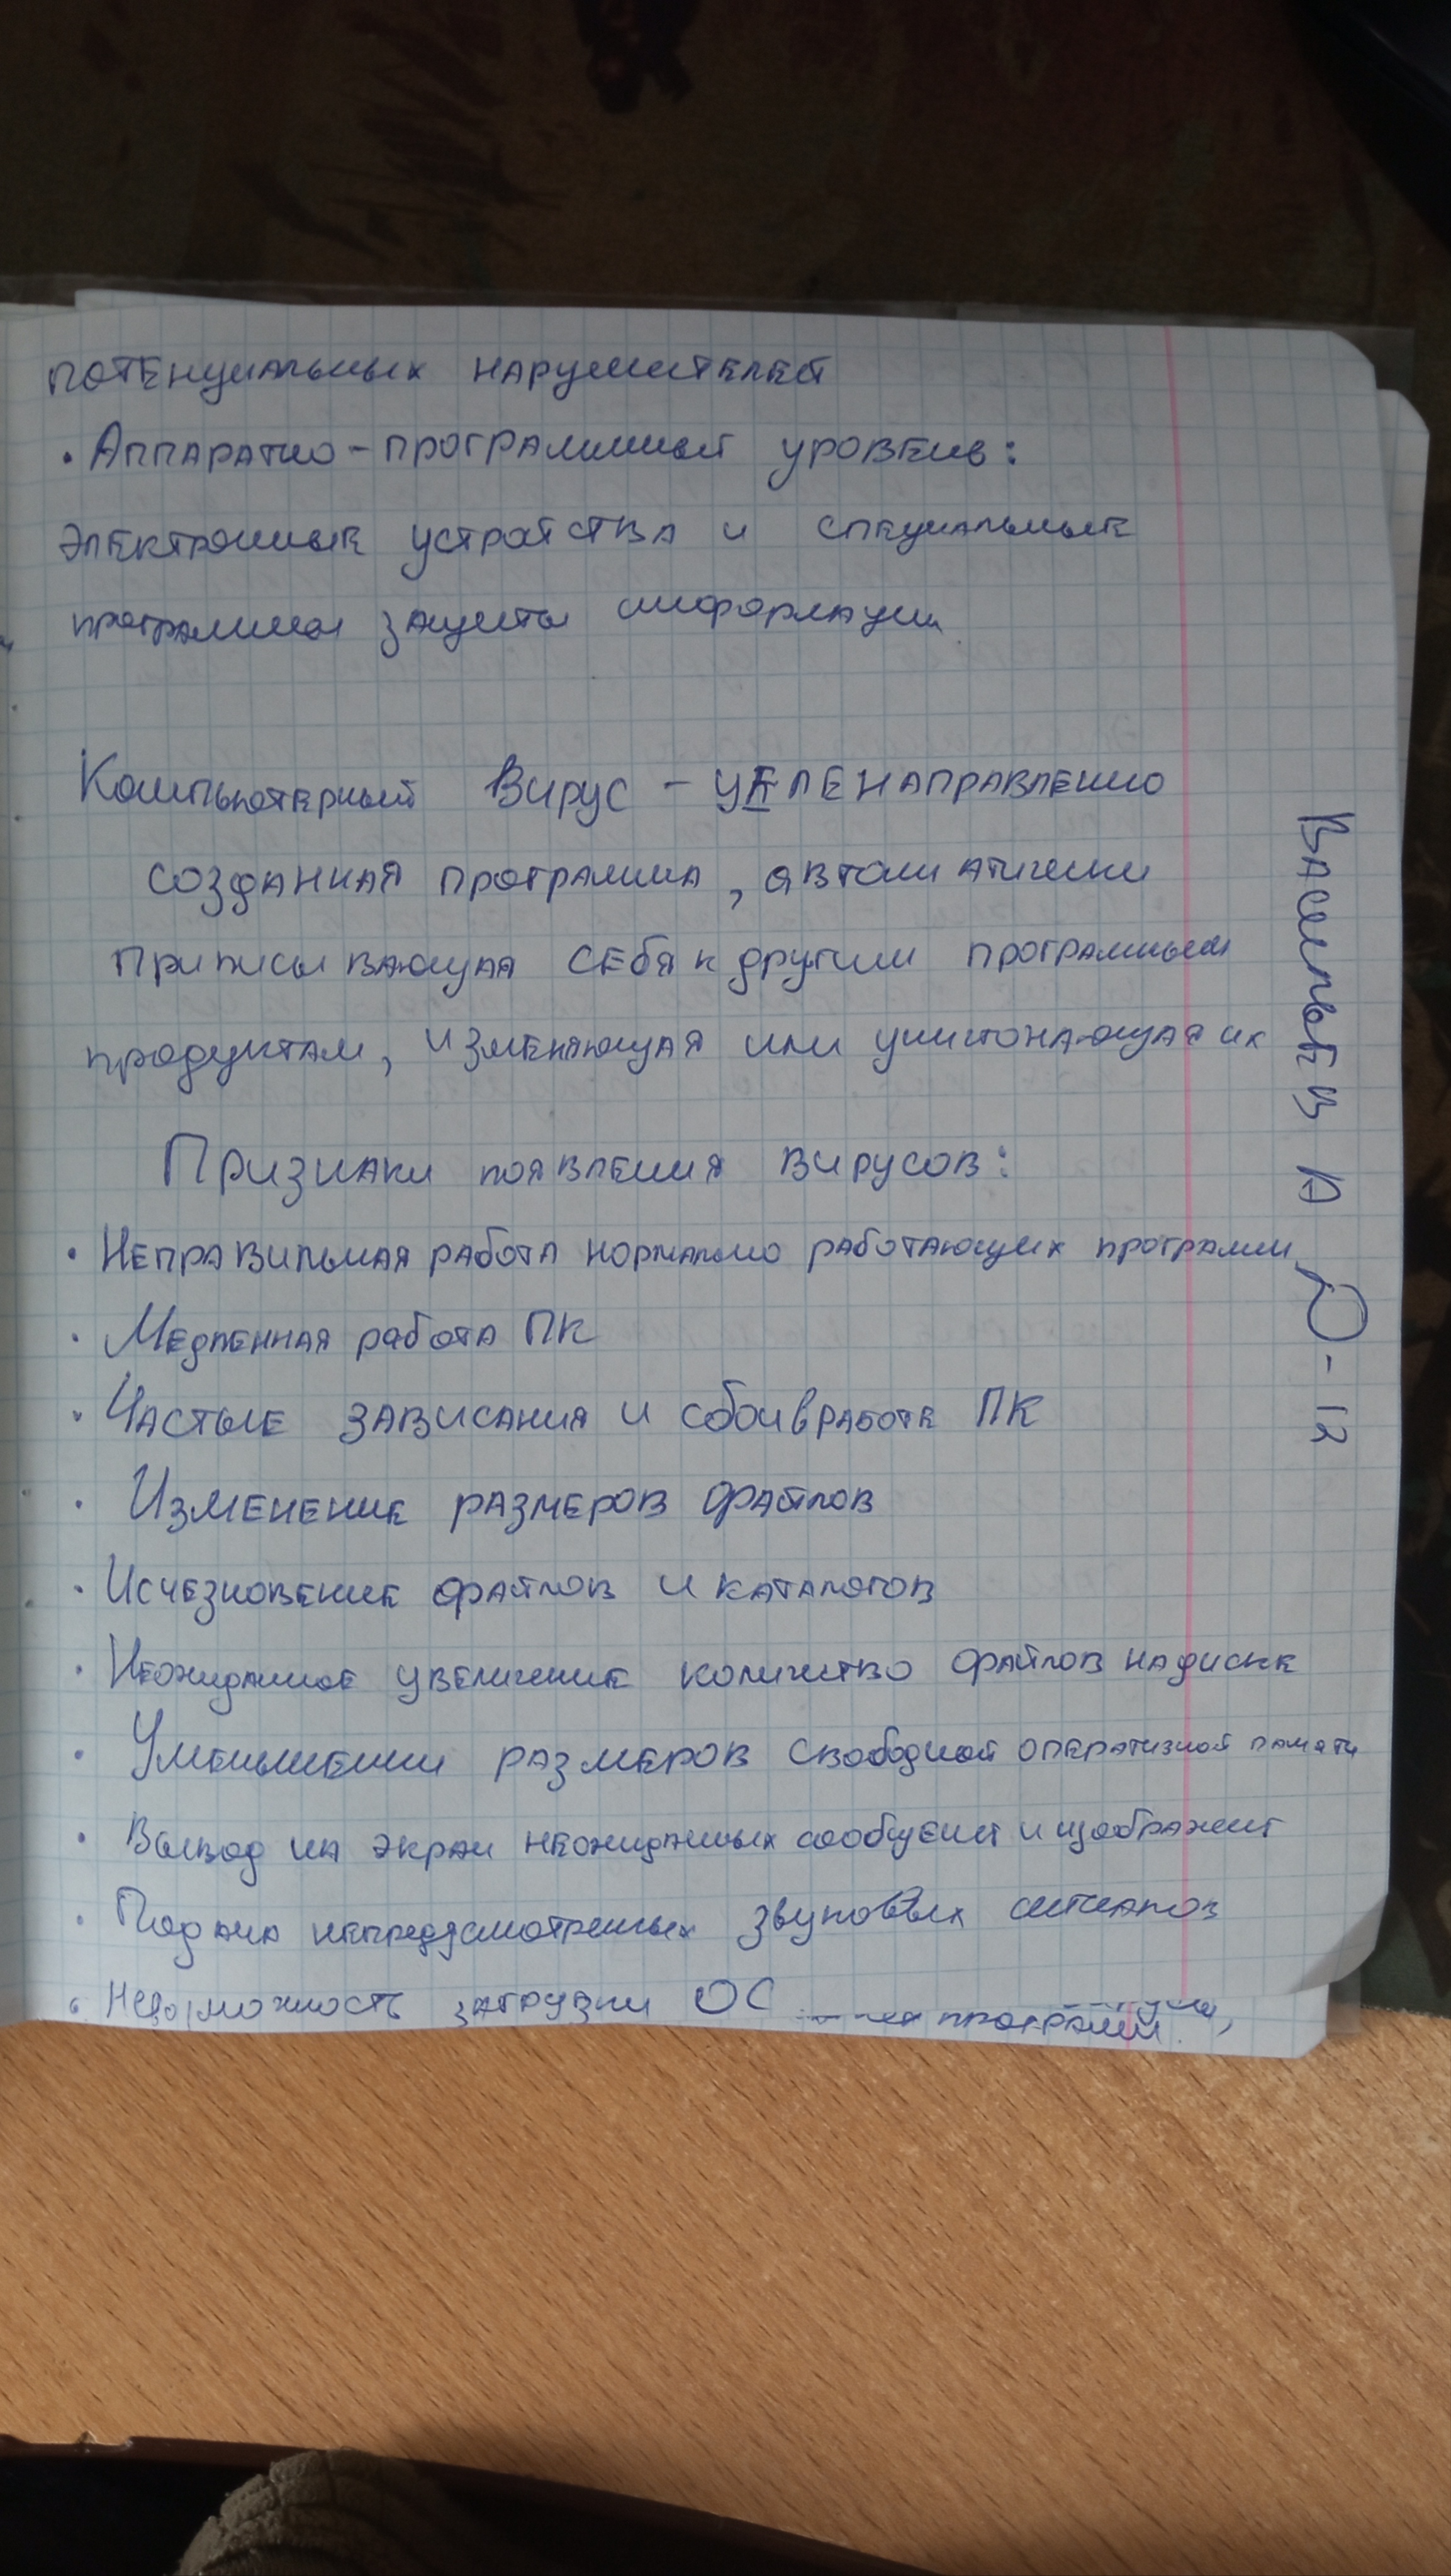 потенциальных нарушителей
• Аппаратно-программный уровень:
электронные устройства и специальные
программы защиты информации
Компьютерный Вирус – целенаправленно
созданная программа, автоматически
приписывающая себя к другим программным
продуктам, изменяющая или уничтожающая их
Признаки появления вирусов:
• Неправильная работа нормально работающих программ
• Медленная работа ПК
• Частые зависания и сбои в работе ПК
• Изменение размеров файлов
• Исчезновение файлов и каталогов
• Неожиданное увеличение количество файлов на диске
• Уменьшении размеров свободной оперативной памяти
• Вывод на экран неожиданных сообщений и изображений
• Подача непредусмотренных звуковых сигналов
• Невозможность загрузки ОС
программ.
Васильев А